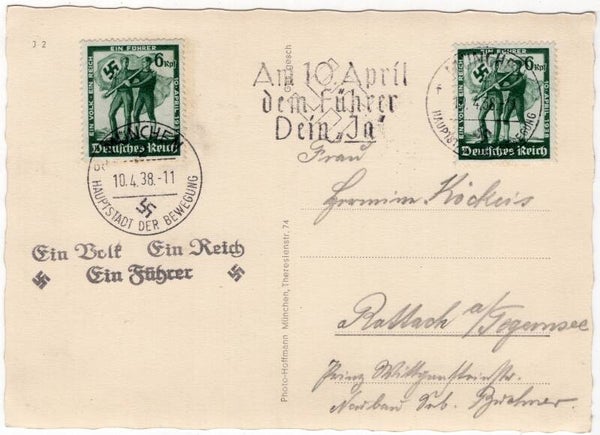 J 2
EIN FÜHRER
6 Rpf
EIN VOLK EIN REICH
10. APRIL 1938
Deutsches Reich
MÜNCHEN
10.4.38.-11
HAUPTSTADT DER BEWEGUNG
Am 10. April
dem Führer
Dein „Ja"
MÜNCHEN
HAUPTSTADT DER BEWEGUNG
EIN FÜHRER
6 Rpf
EIN VOLK EIN REICH
10. APRIL 1938
Deutsches Reich
Ein Volk Ein Reich
Ein Führer
Photo-Hoffmann München, Theresienstr. 74
Ges. gesch
Frau
Hermine
Rottach a/Tegernsee
Prinz Wittgensteinstr.
Neubau